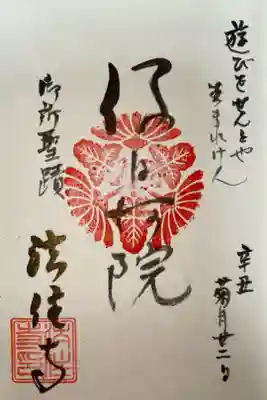 遊びをせんとや
生まれけん
辛丑
菊月廿二日
後白河院
御所聖蹟
法住寺